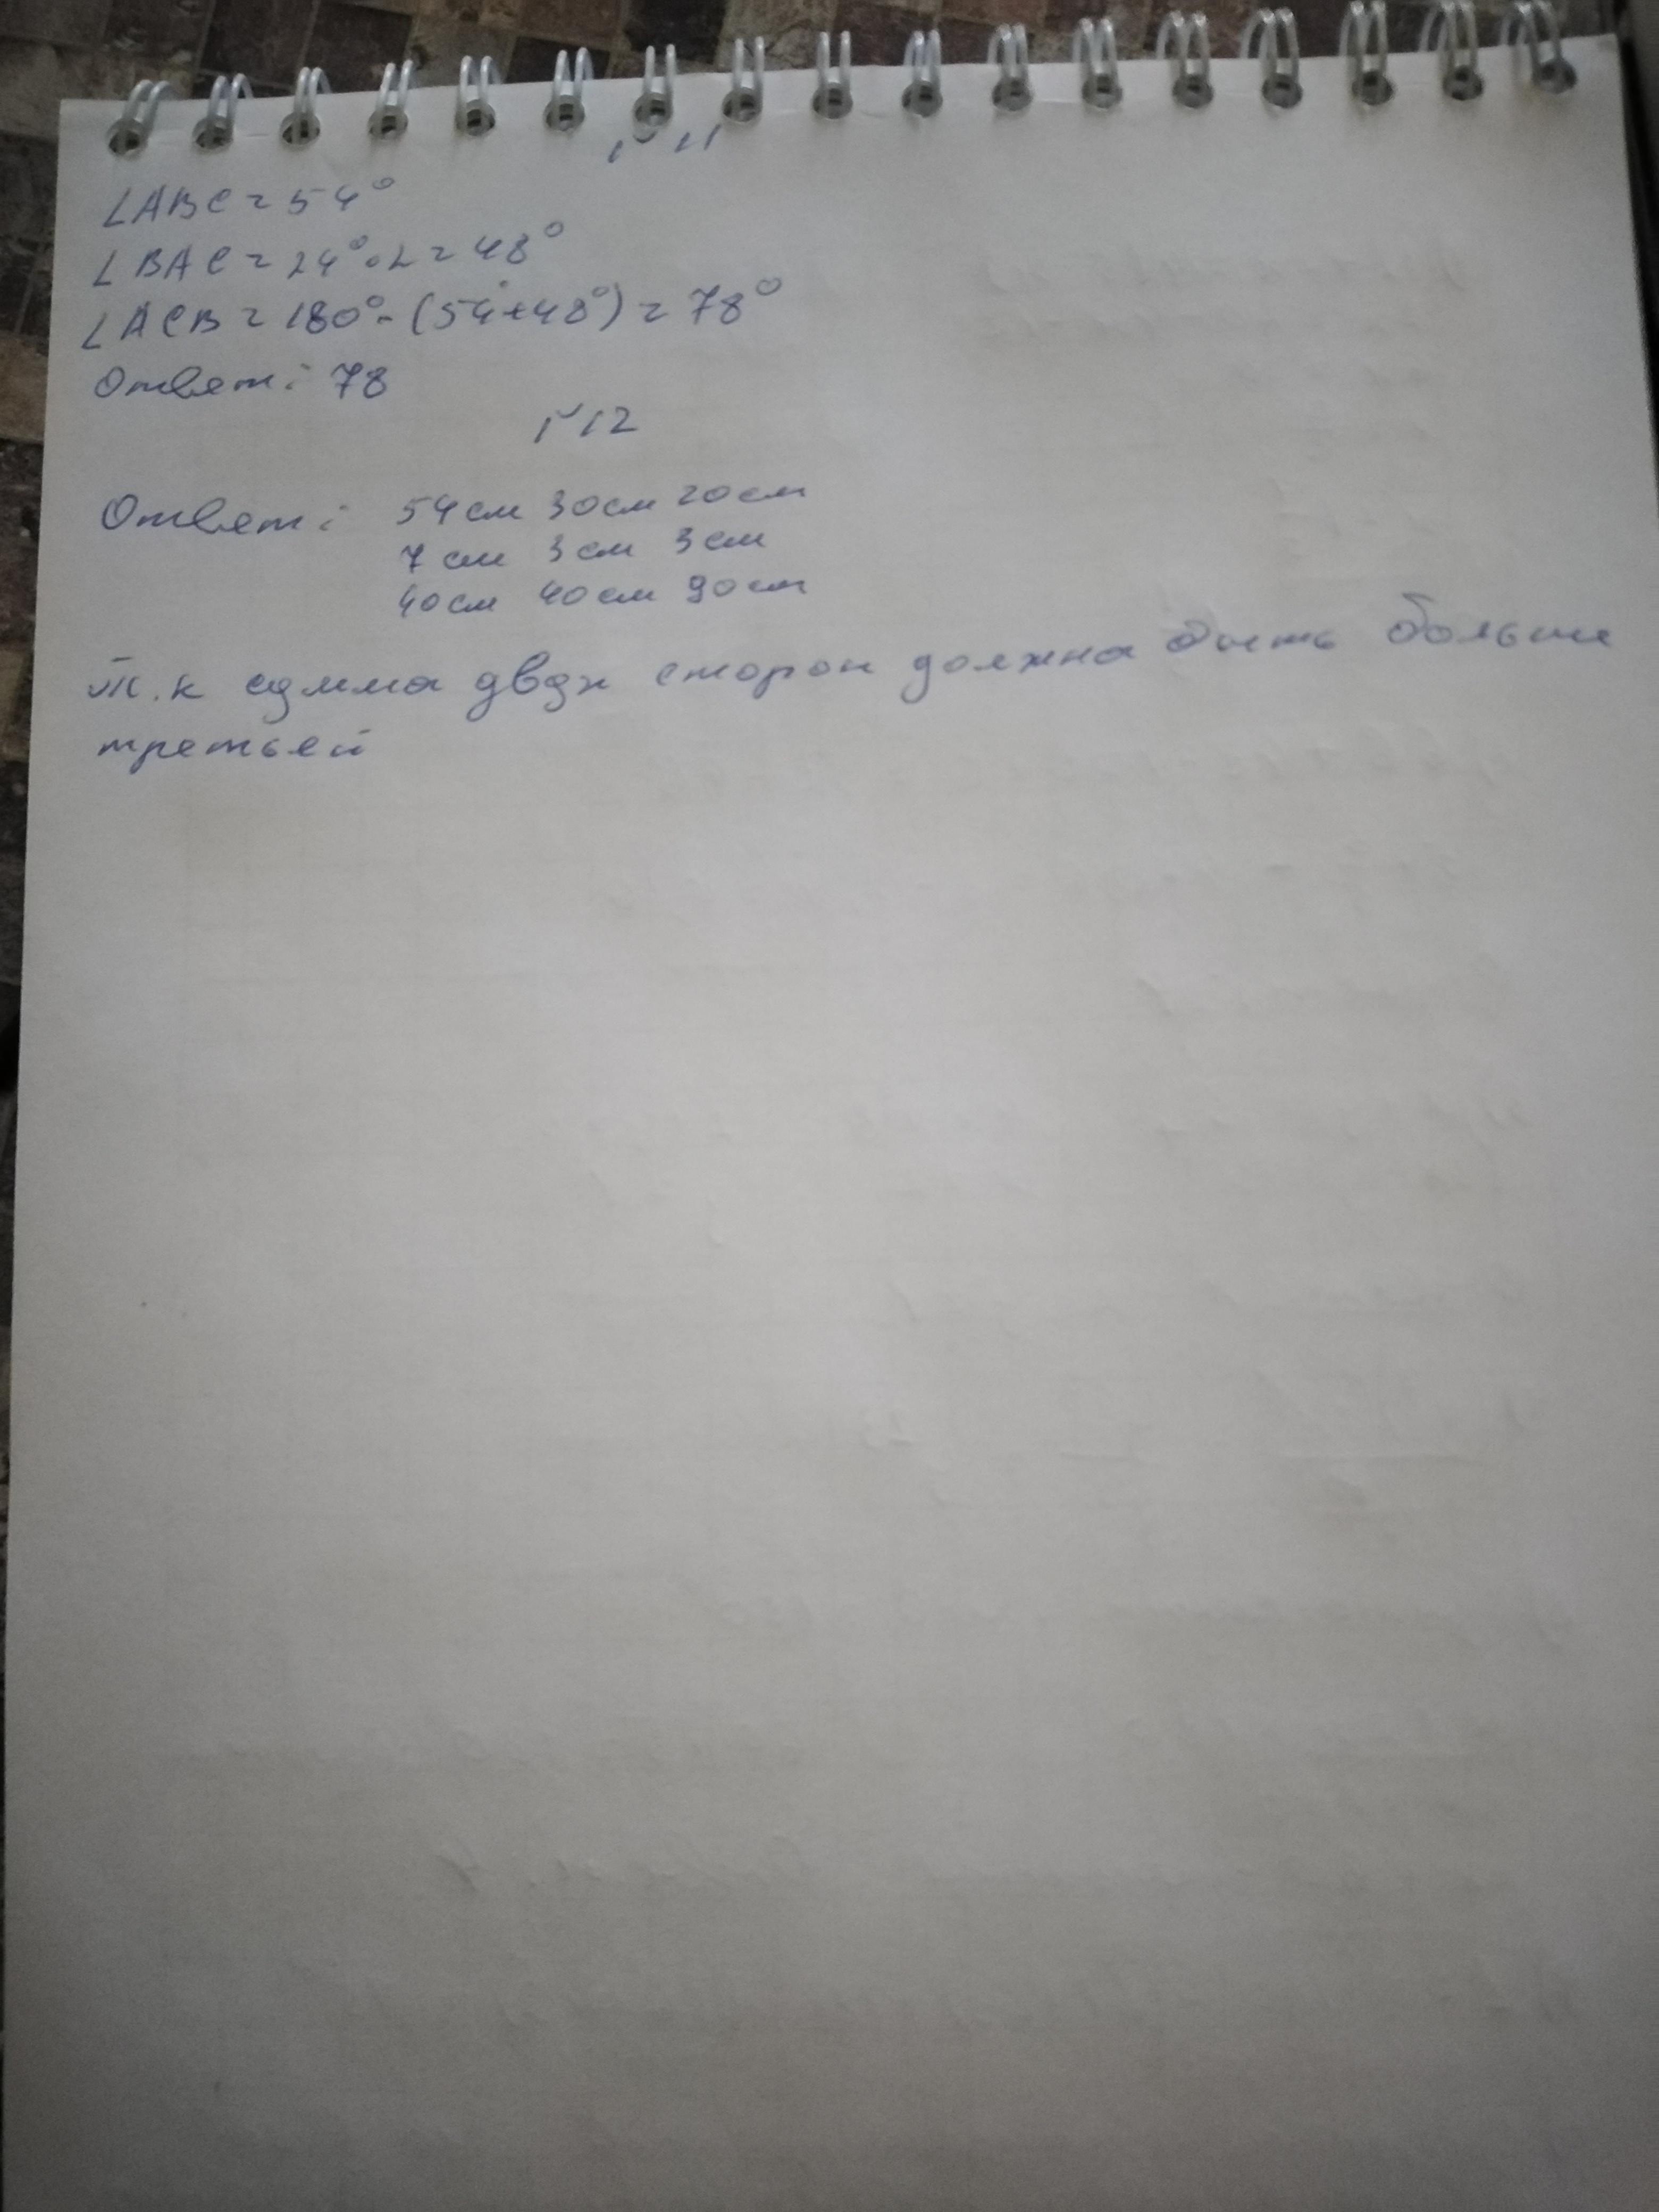 № 11
∠ABC = 54°
∠BAC = 24°·2 = 48°
∠ACB = 180° - (54°+48°) = 78°
Ответ: 78
№12
Ответ: 54см 30см 20см
7см 3см 3см
40см 40см 90см
Т.к сумма двух сторон должна быть больше
третьей